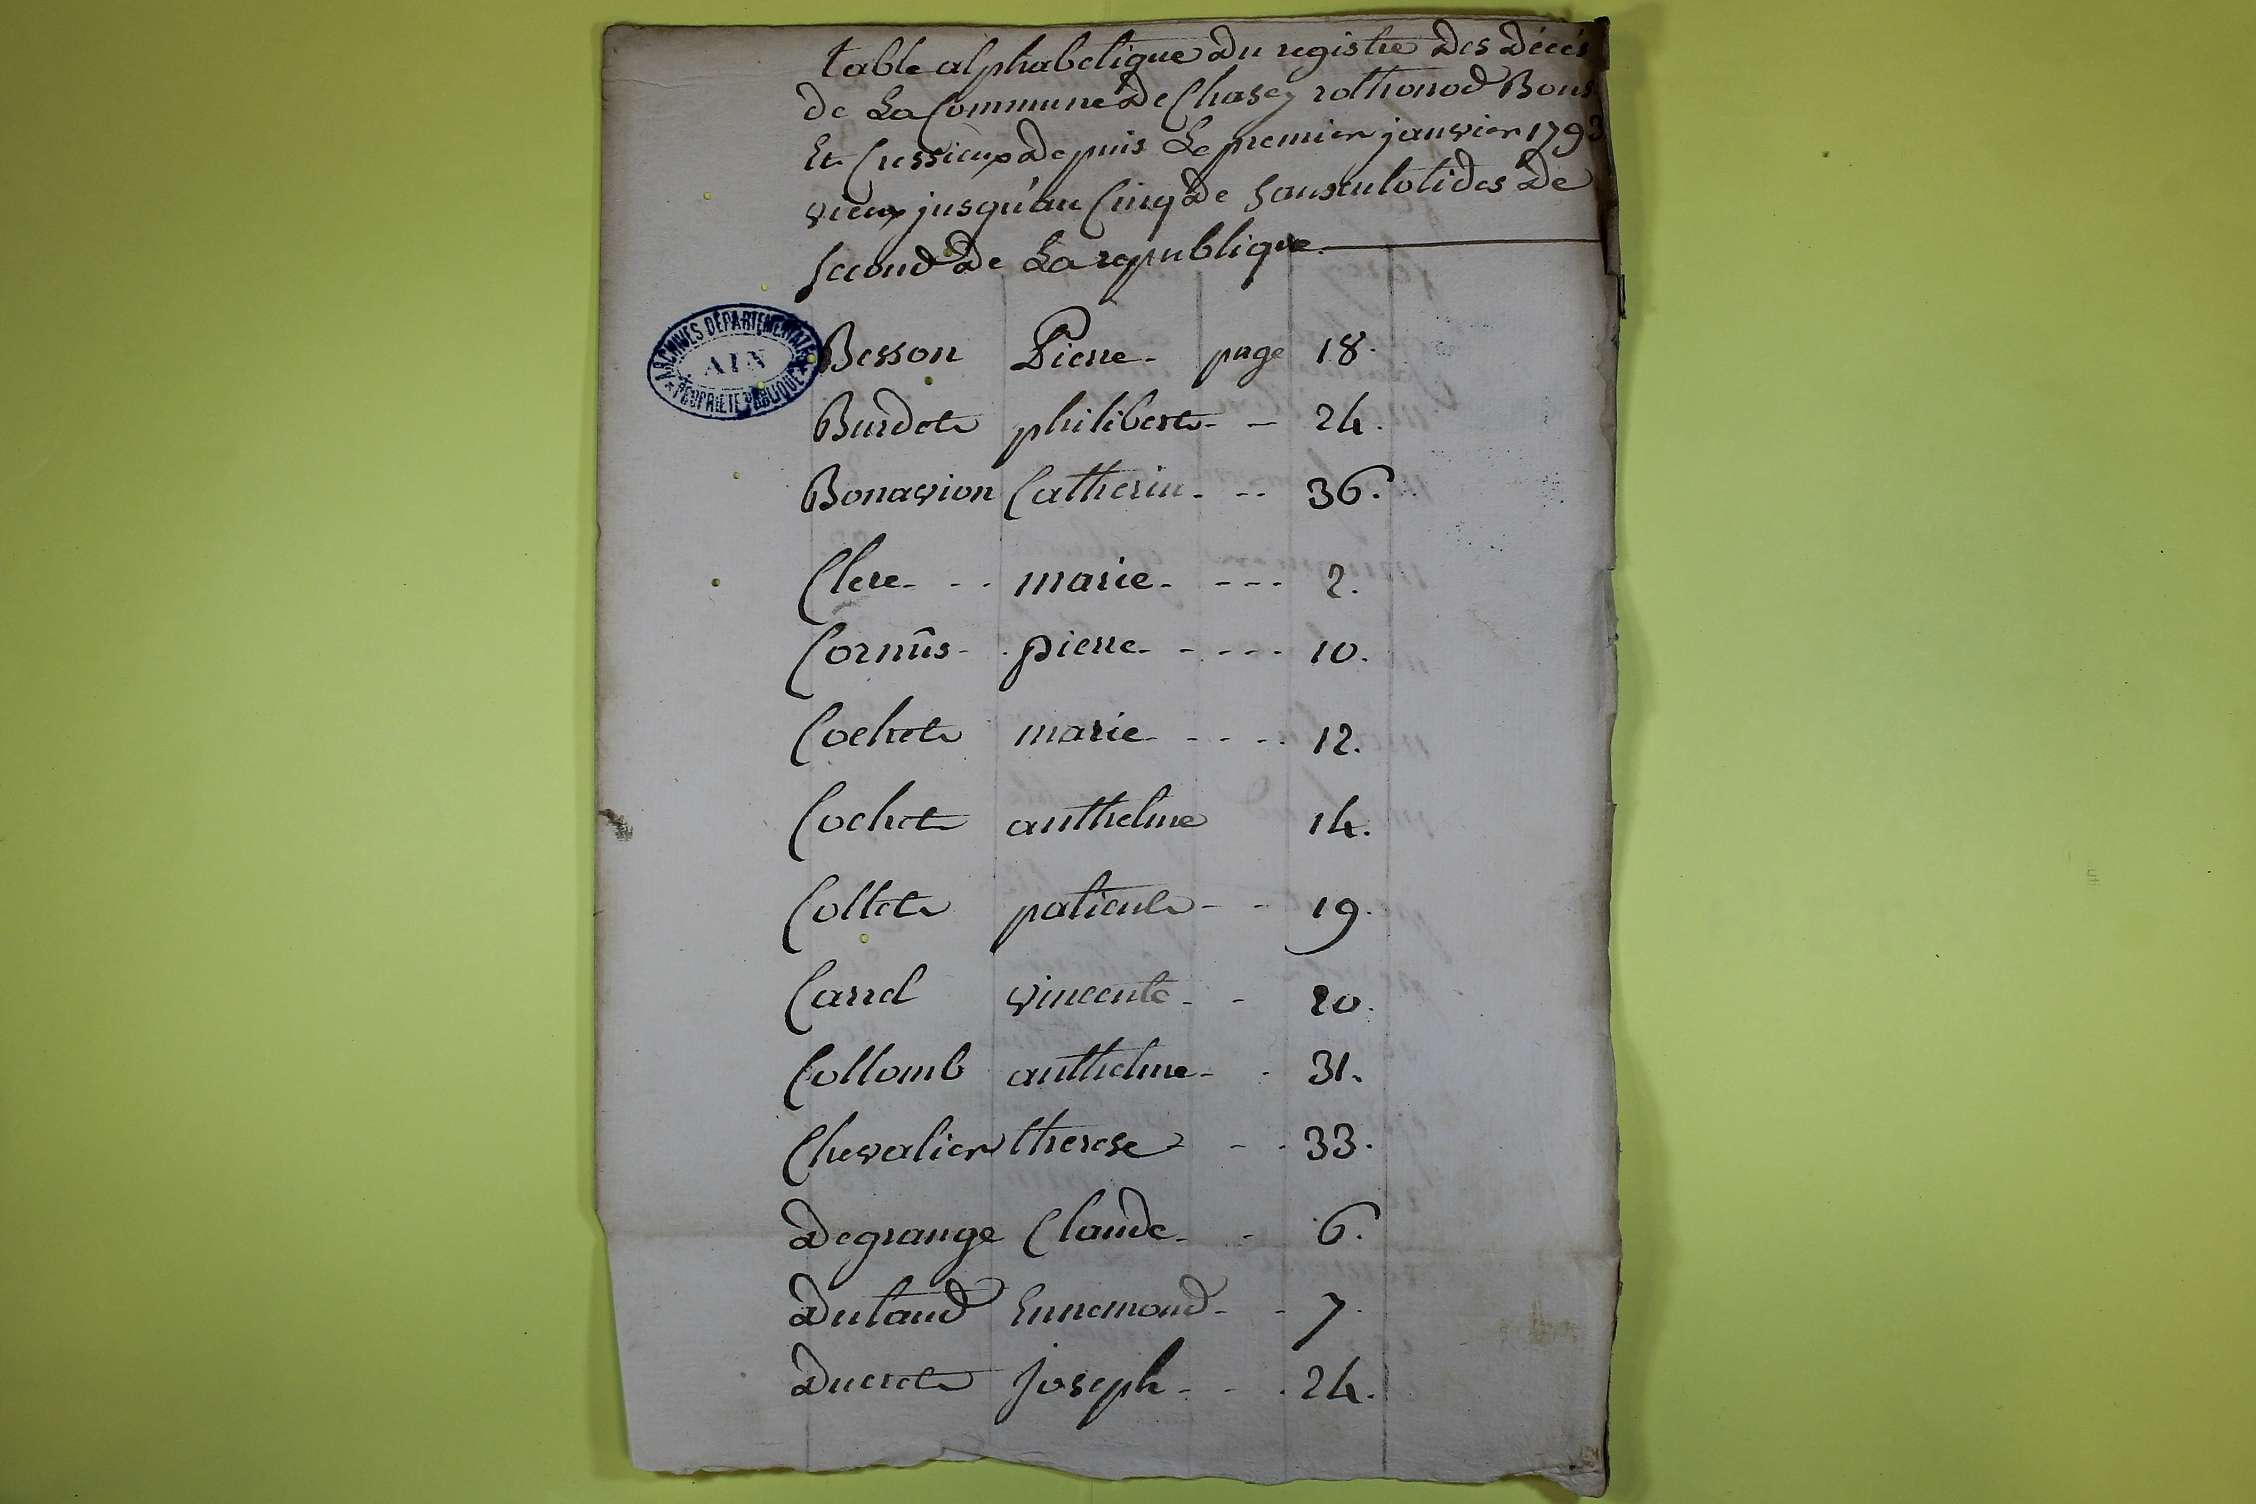 table alphabetique du registre des décés
de La Commune de Chasey rothonod Bons
Et Cressieux depuis Le premier janvier 1793
vieux jusqu'au Cinq de Sansculotides de
Second de La republique
ARCHIVES DÉPARTEMENTALES
AIN
PROPRIÉTÉ PUBLIQUE
Besson Pierre - page 18.
Burdet philibert - - 24.
Bonavion Catherin - -- 36.
Clere - - - marie - - - - 2.
Cornûs - - pierre - - - - - 10.
Cochet marie - - - - - 12.
Cochet anthelme 14.
Collet patient - - 19.
Carrel vincente - - 20.
Collomb anthelme - - 31.
Chevalier therese - - 33.
Degrange Claude - - 6.
Dutaud Ennemond - - 7.
Ducret Joseph - - - 24.